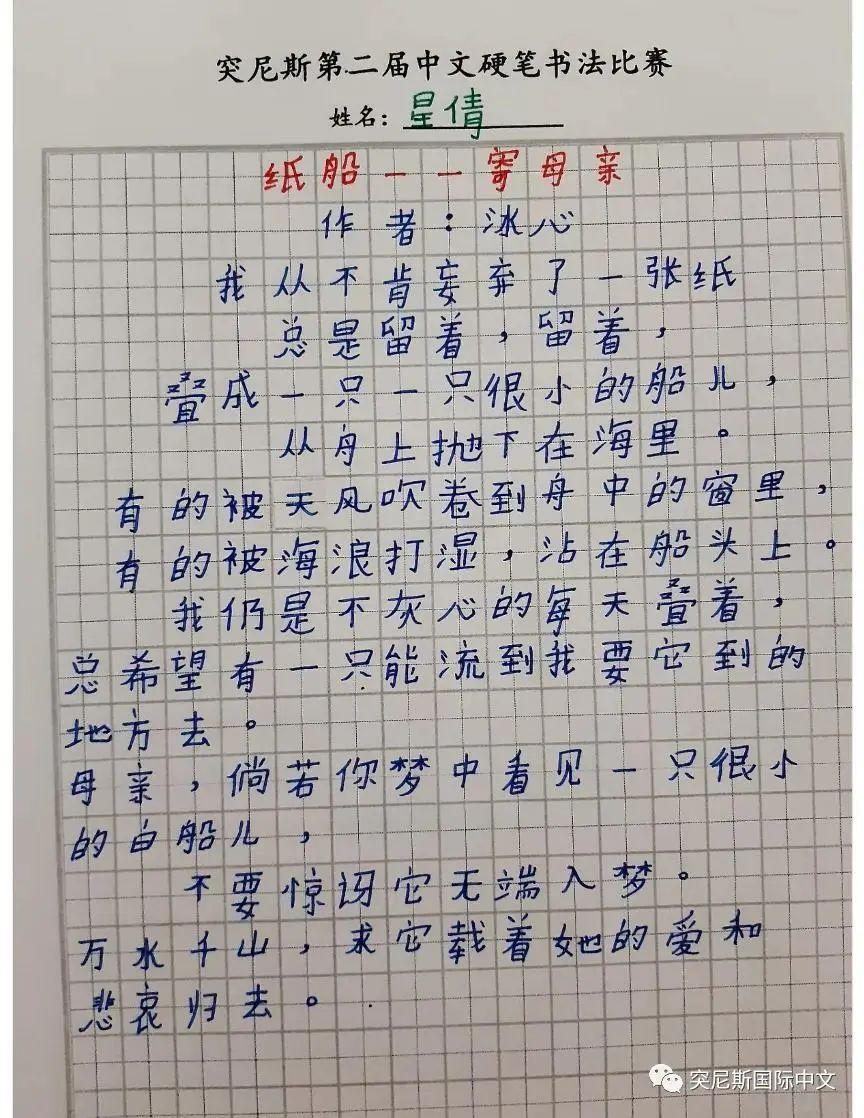 突尼斯第二届中文硬笔书法比赛
姓名：星倩
纸船——寄母亲
作者：冰心
我从不肯妄弃了一张纸
总是留着，留着，
叠成一只一只很小的船儿，
从舟上抛下在海里。
有的被天风吹卷到舟中的窗里，
有的被海浪打湿，沾在船头上。
我仍是不灰心的每天叠着，
总希望有一只能流到我要它到的
地方去。
母亲，倘若你梦中看见一只很小
的白船儿，
不要惊讶它无端入梦。
万水千山，求它载着她的爱和
悲哀归去。
突尼斯国际中文